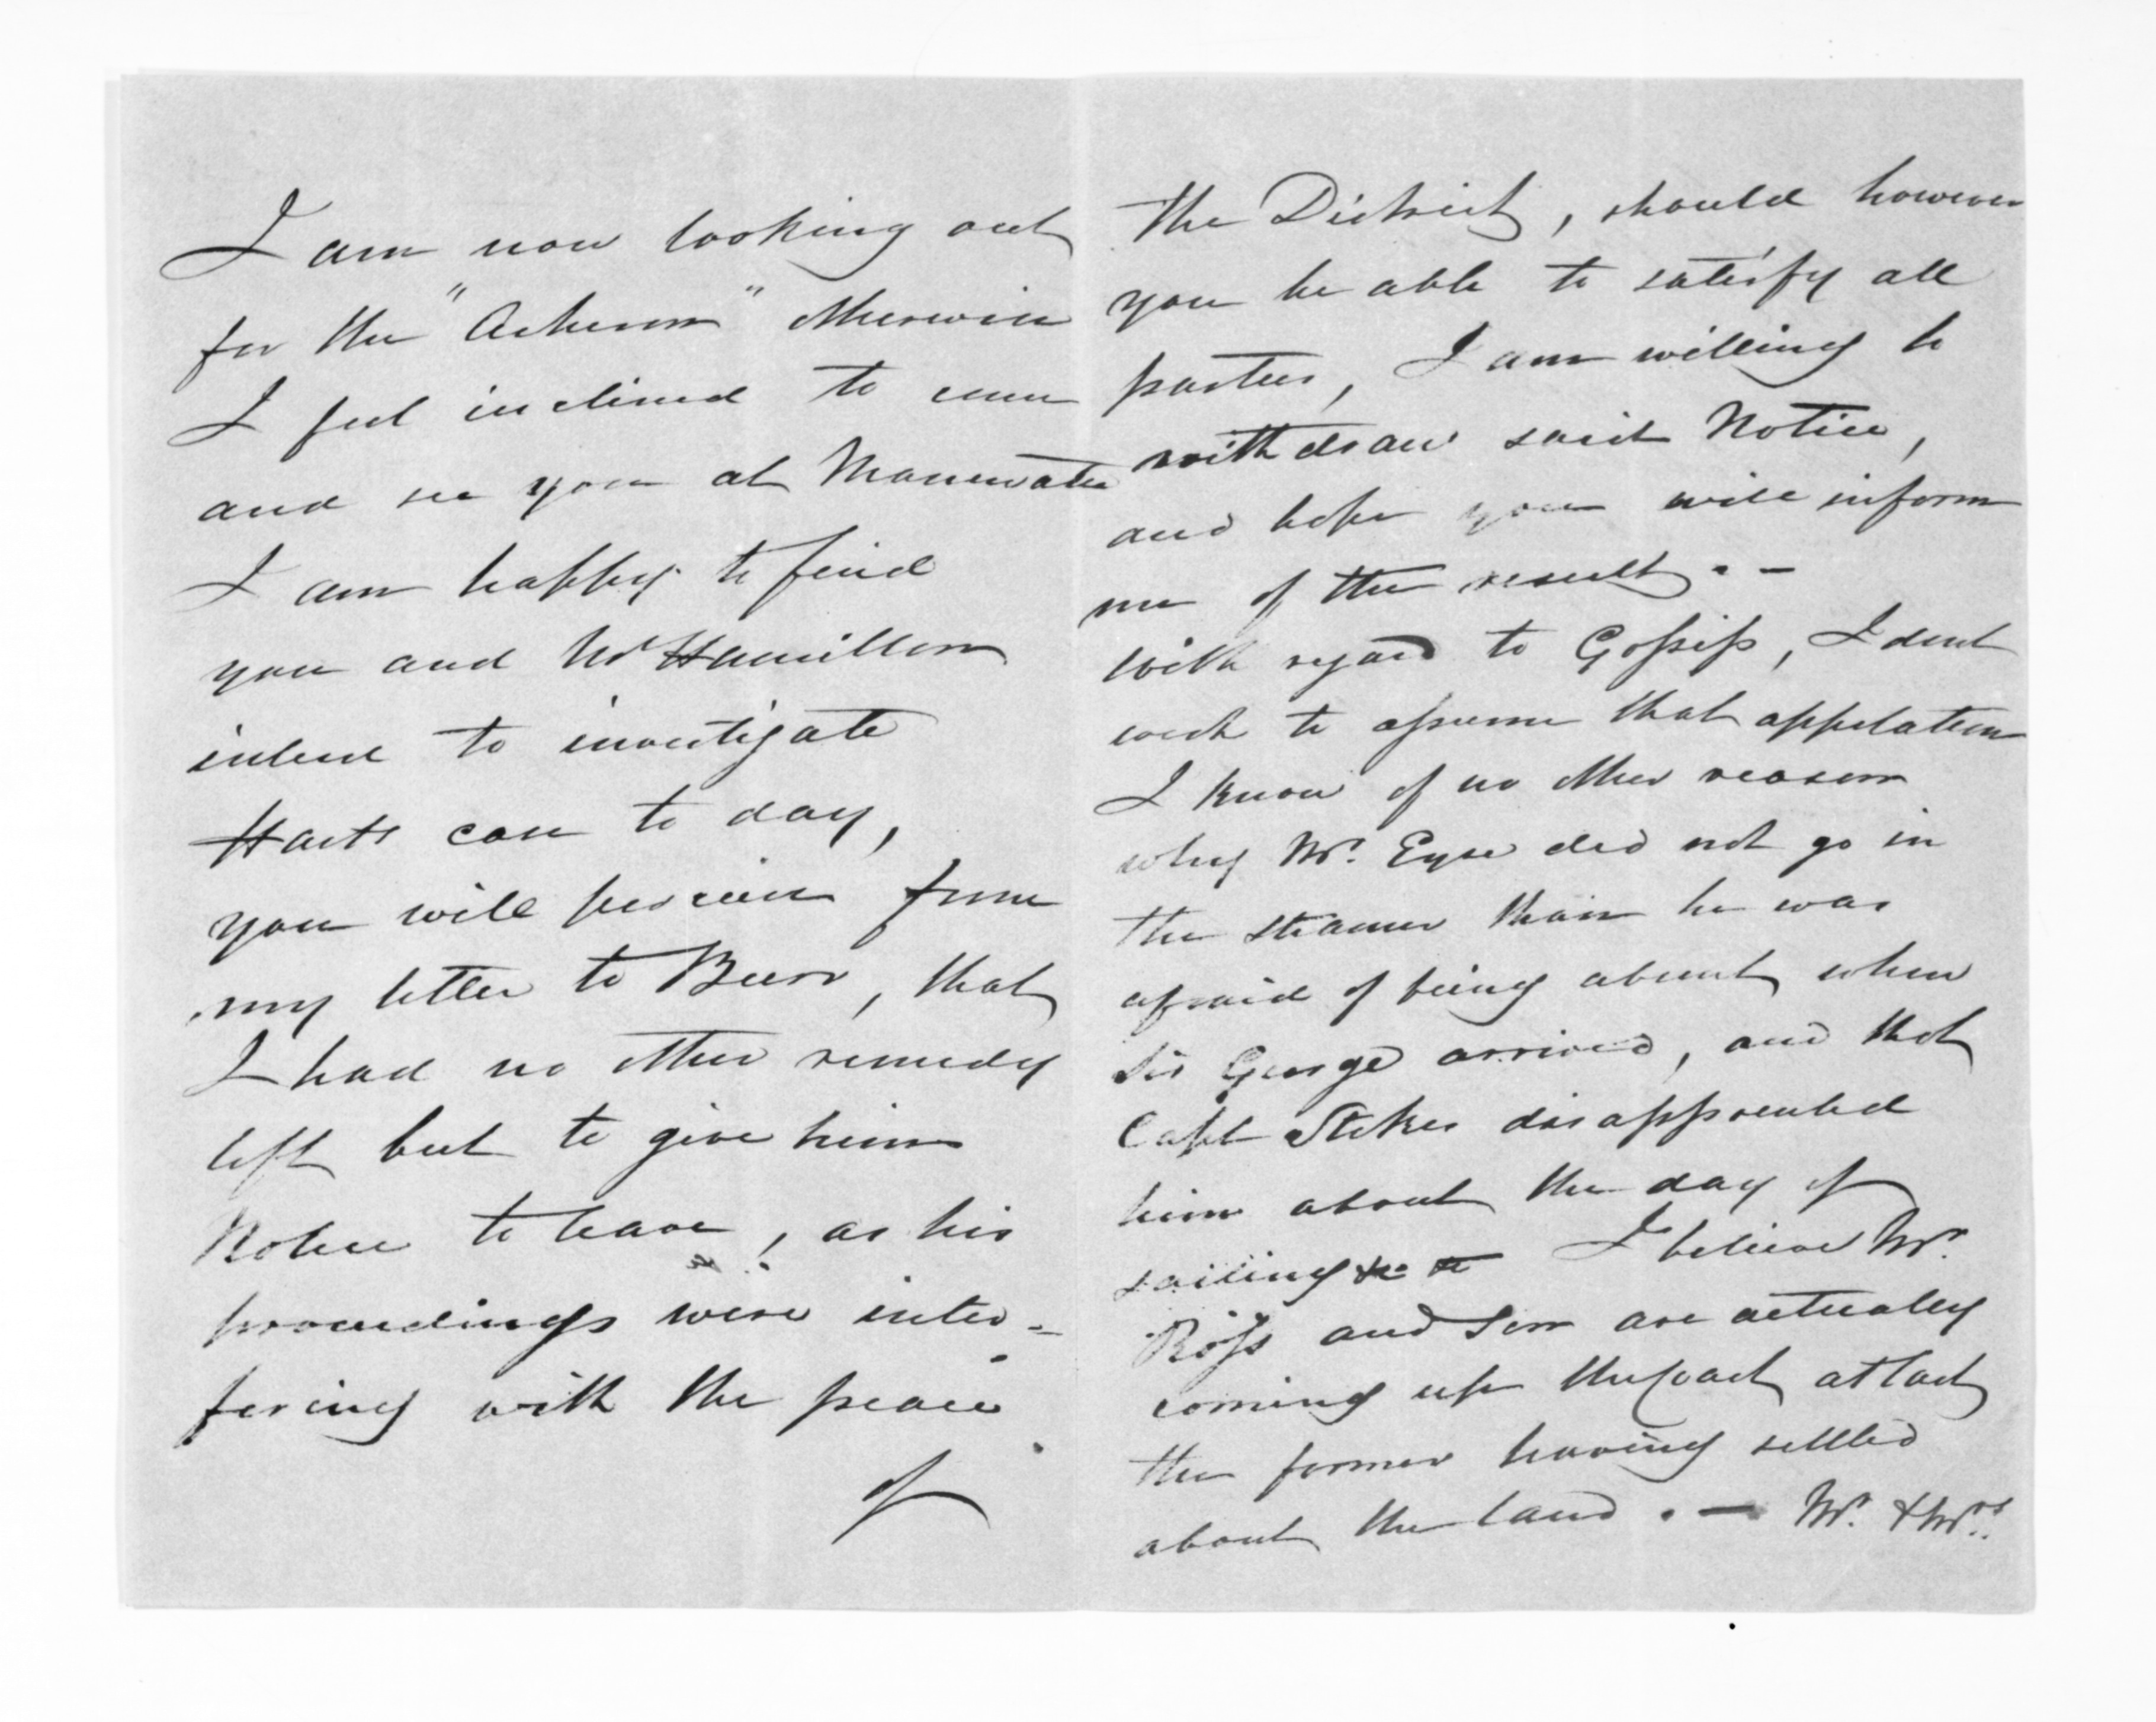 I am now looking out
for the "Acheron" otherwise
I feel inclined to come
and see you at Manewatu
I am happy to find
you and Mr Hamilton
intend to investigate
Harts case to day,
you will perceive from
my letter to Beer, that
I had no other remedy
left but to give him
Notice to leave, as his
proceedings were inter-
fering with the peace
of
the District, should however
you be able to satisfy all
parties, I am willing to
withdraw said Notice,
and hope you will inform
me of the result. -
With regard to Gossip, I dont
wish to assume that appelation
I know of no other reason
why Mr. Eyre did not go in
the steamer than he was
afraid of being absent when
Sir George arrived, and that
Capt Stokes disappointed
him about the day of
sailing I believe Mr.
Ross and Son are actually
coming up the coast at last
the former having settled
about the land. - Mr. & Mrs.